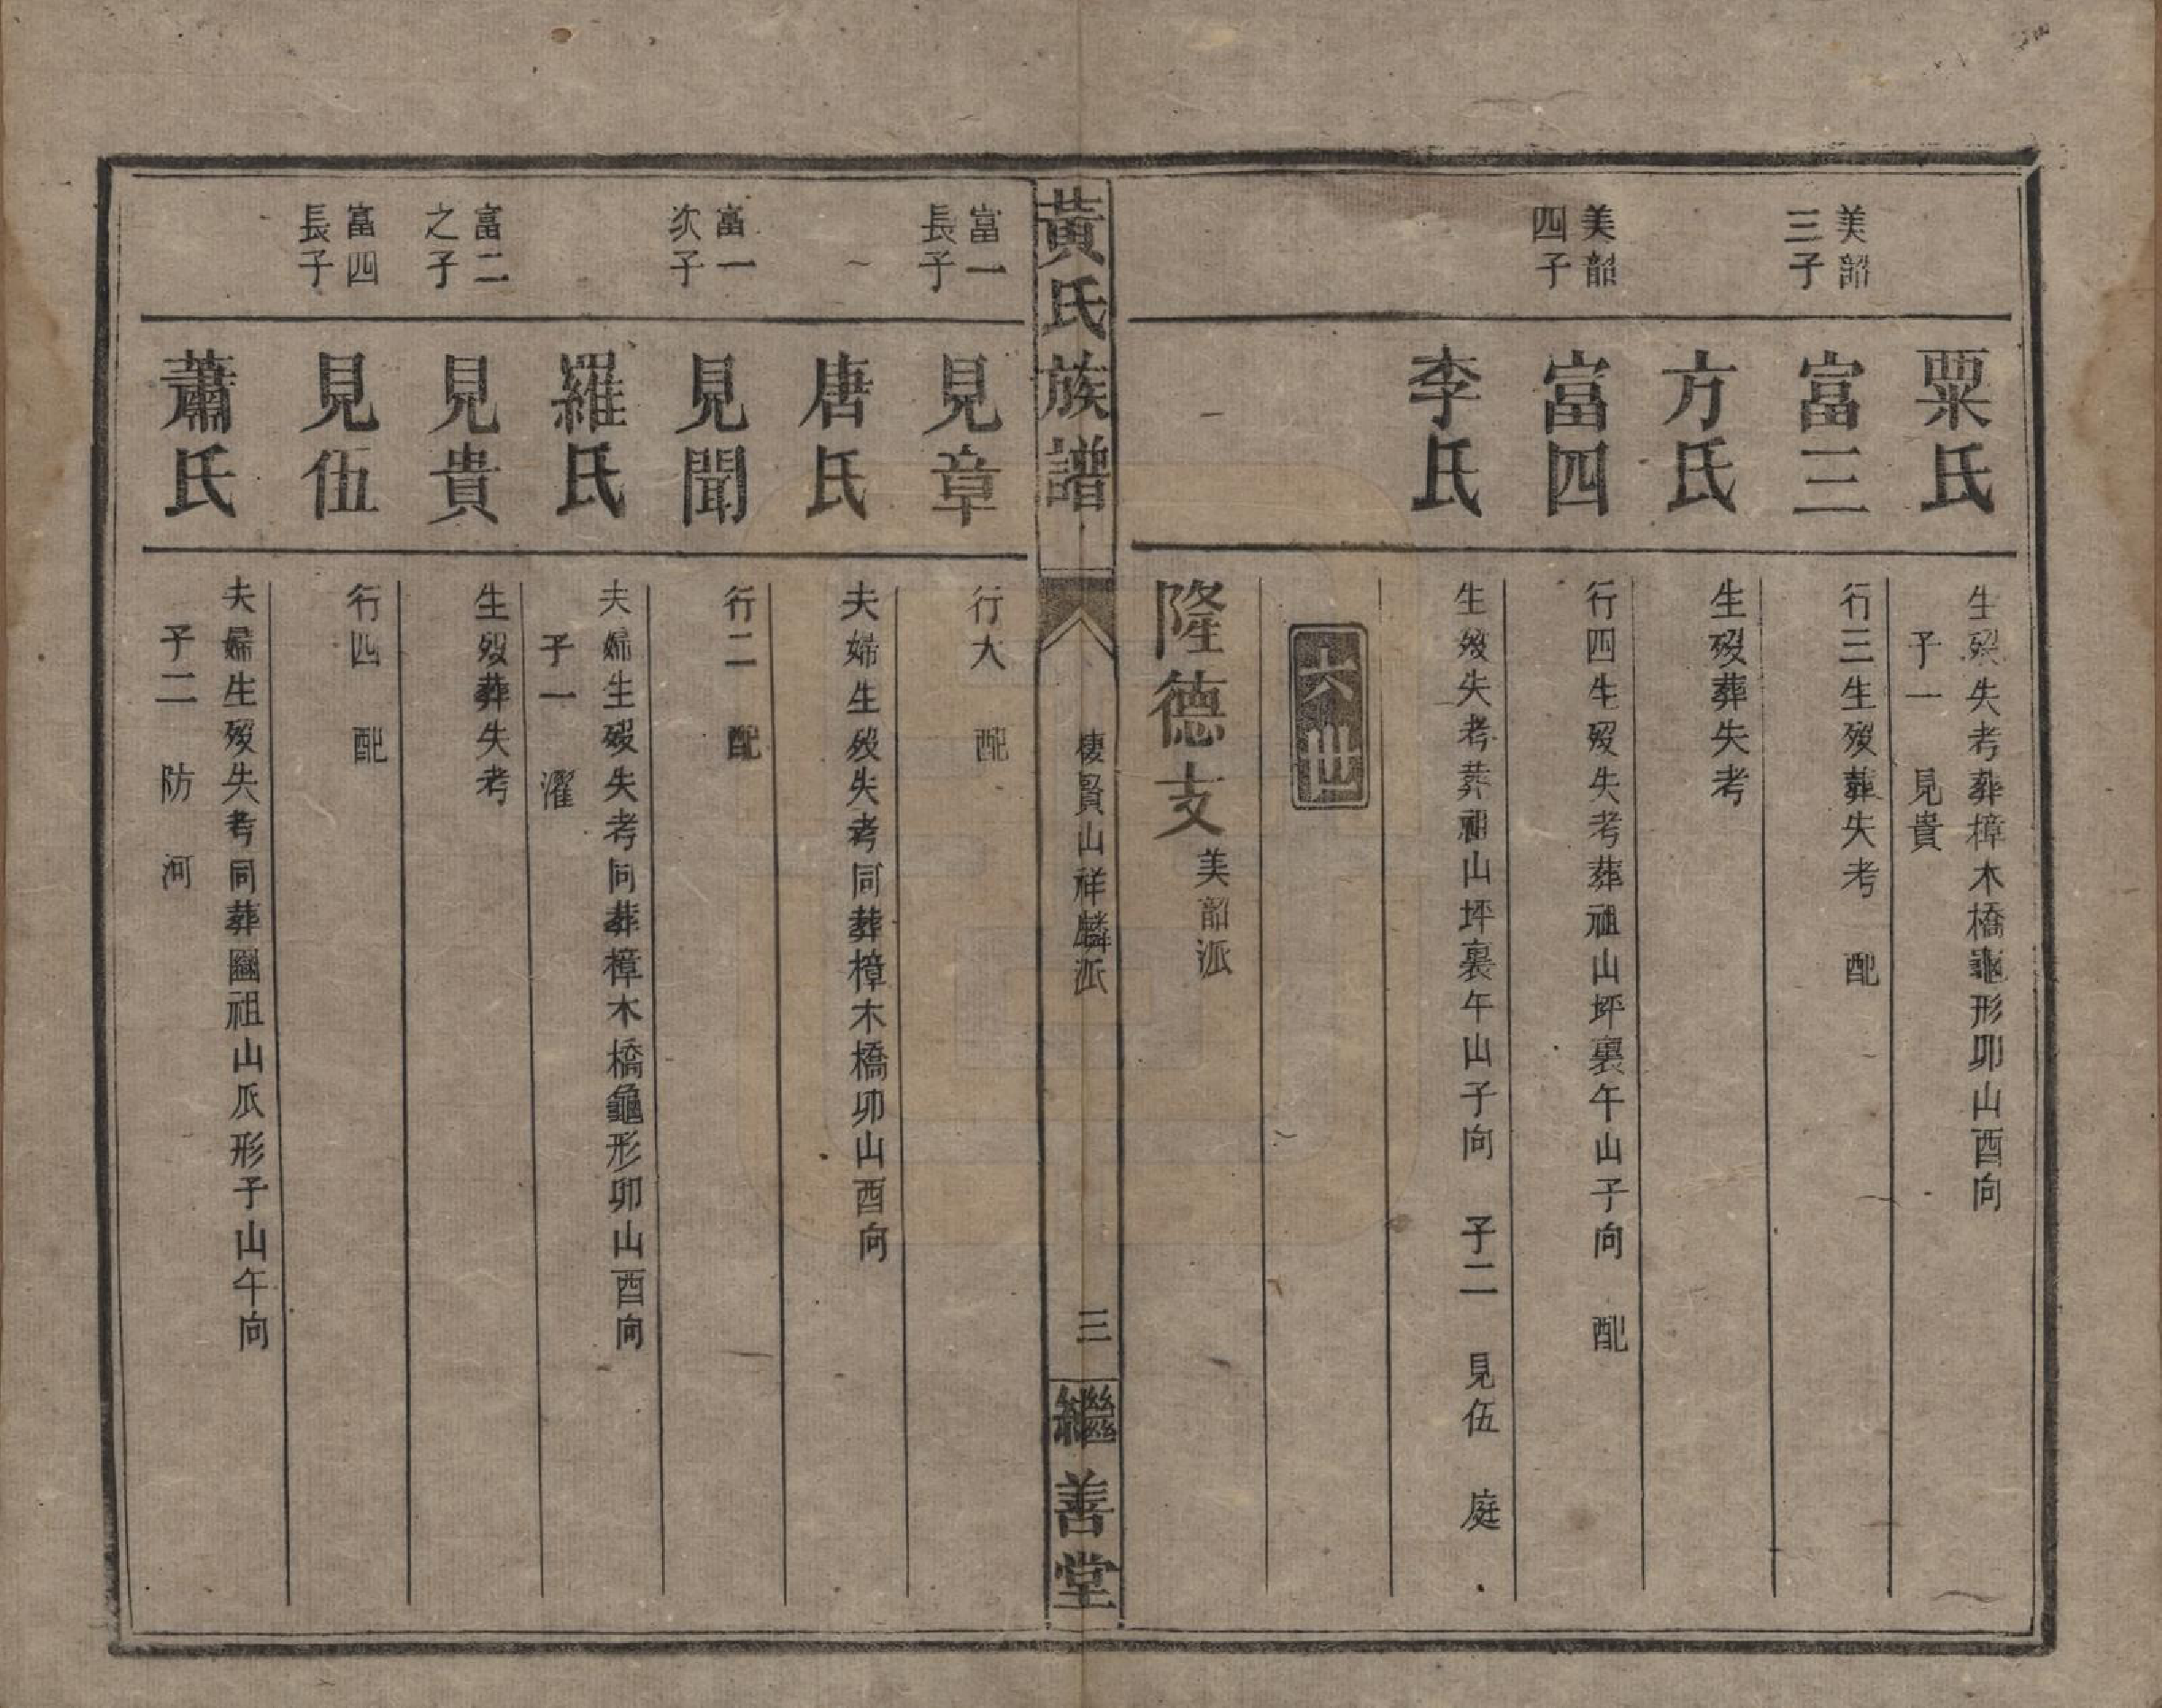 粟氏
生殁失考葬樟木橋龜形卯山酉向
子一 見貴
美韶
三子
富三
行三生殁葬失考 配
方氏
生殁葬失考
美韶
四子
富四
行四生殁失考葬祖山坪裏午山子向 配
李氏
生殁失考葬祖山坪裏午山子向 子二 見伍 庭
六世
隆德支 美韶派
黃氏族譜
棲賢山祥麟派
三
繼善堂
富一
長子
見章
行大 配
唐氏
夫婦生殁失考同葬樟木橋卯山酉向
富一
次子
見聞
行二 配
羅氏
夫婦生殁失考同葬樟木橋龜形卯山酉向
子一 濯
富二
之子
見貴
生殁葬失考
富四
長子
見伍
行四 配
蕭氏
夫婦生殁失考同葬祖山瓜形子山午向
子二 防 河